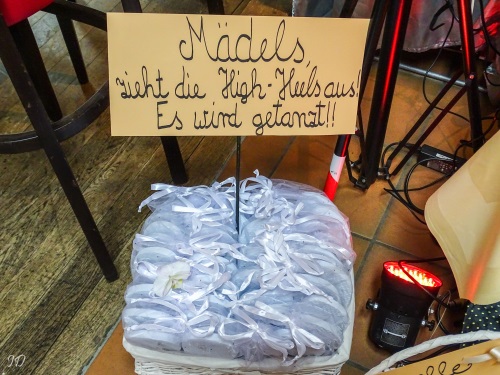 Mädels,
zieht die High-Heels aus!
Es wird getanzt!!